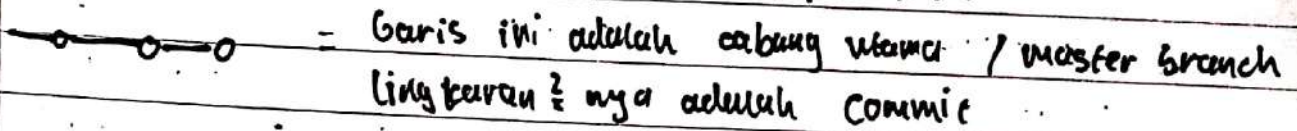 = Garis ini adalah cabang utama / master branch
lingkaran 2 nya adalah commit